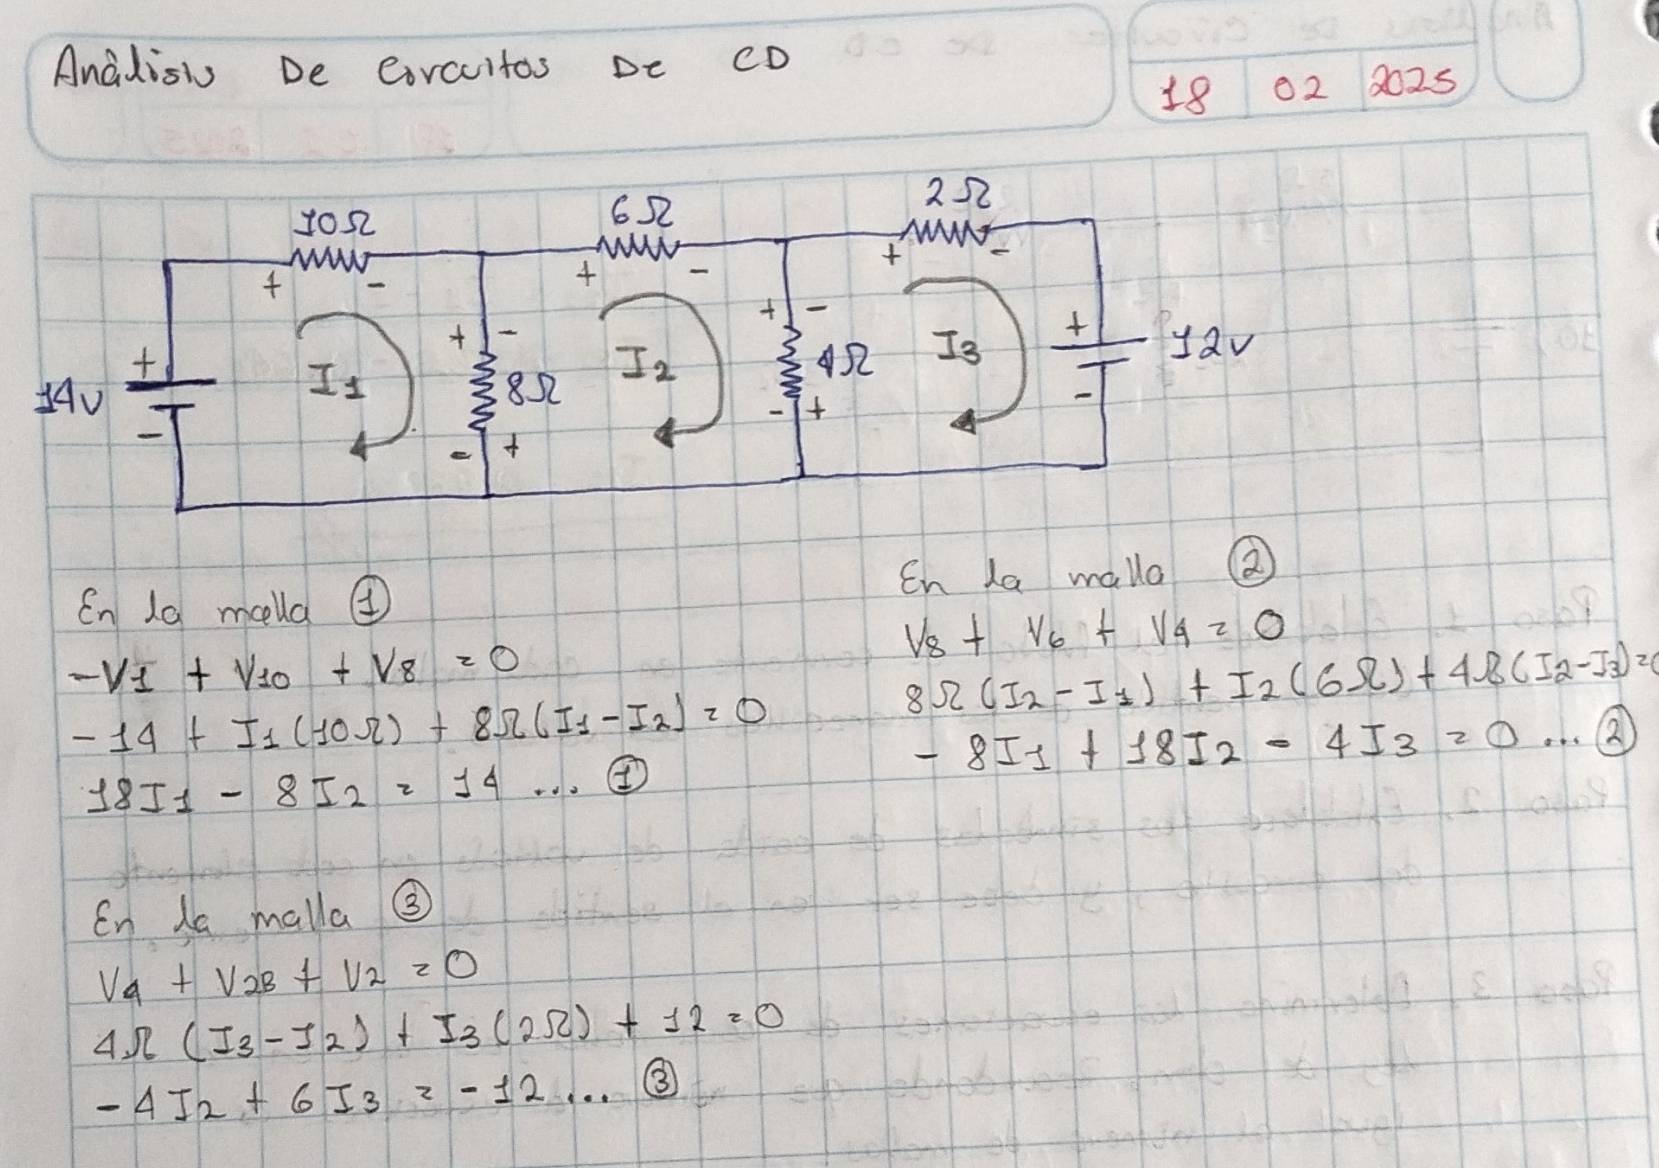 Análisis De Circuitos De CD
18 02 2025
10Ω 6Ω 2Ω
+ - + - + -
14v + - I1 + - 8Ω - + I2 + - 4Ω - + I3 + - 12v
En la malla ①
-V1 + V10 + V8 = 0
-14 + I1(10Ω) + 8Ω(I1-I2) = 0
18I1 - 8I2 = 14 ... ①
En la malla ②
V8 + V6 + V4 = 0
8Ω(I2-I1) + I2(6Ω) + 4Ω(I2-I3)=0
-8I1 + 18I2 - 4I3 = 0 ... ②
En la malla ③
V4 + V2B + V2 = 0
4Ω(I3-I2) + I3(2Ω) + 12 = 0
-4I2 + 6I3 = -12 ... ③